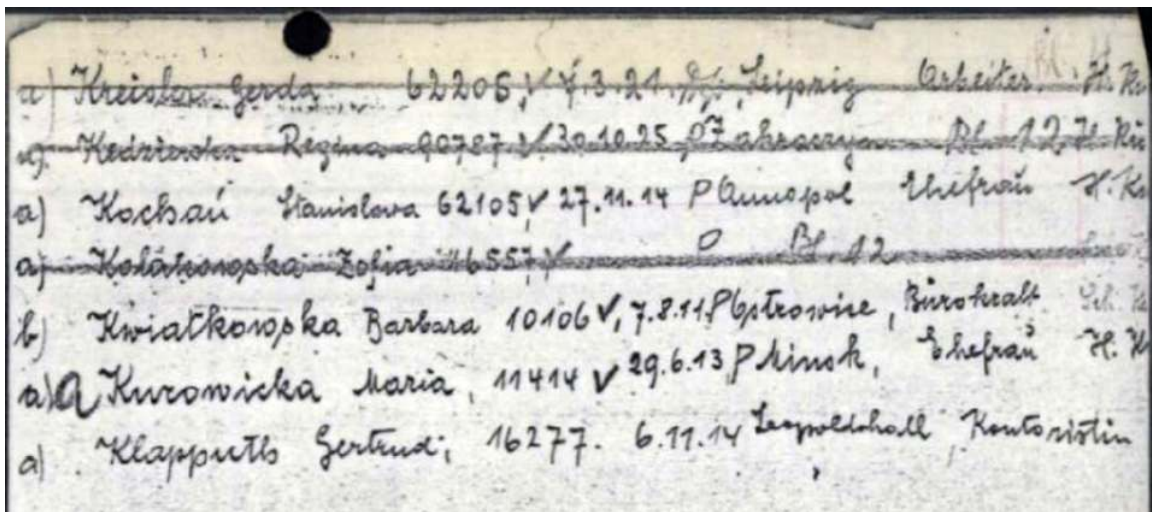 a) Kreisler Gerda 62206, ✓ 4.3.21. Leipzig Arbeiter. H. Kr
a) Kedzierska Regina 90787 ✓ 30.10.25 P Zakroczyn Bl. 12 H. Kü
a) Kochań Stanislava 62105 ✓ 27.11.14 P Annopol Ehefrau H. Kr
a) Kolakowska Zofia 46557 ✓ P Bl. 12
b) Kwiatkowska Barbara 10106 ✓, 7.8.11. P Ostrowice, Bürokraft
a) a Kurowicka Maria, 11414 ✓ 29.6.13 P Minsk, Ehefrau H. K
a) Klapputh Gertrud, 16277. 6.11.14 Leopoldshall Kontoristin